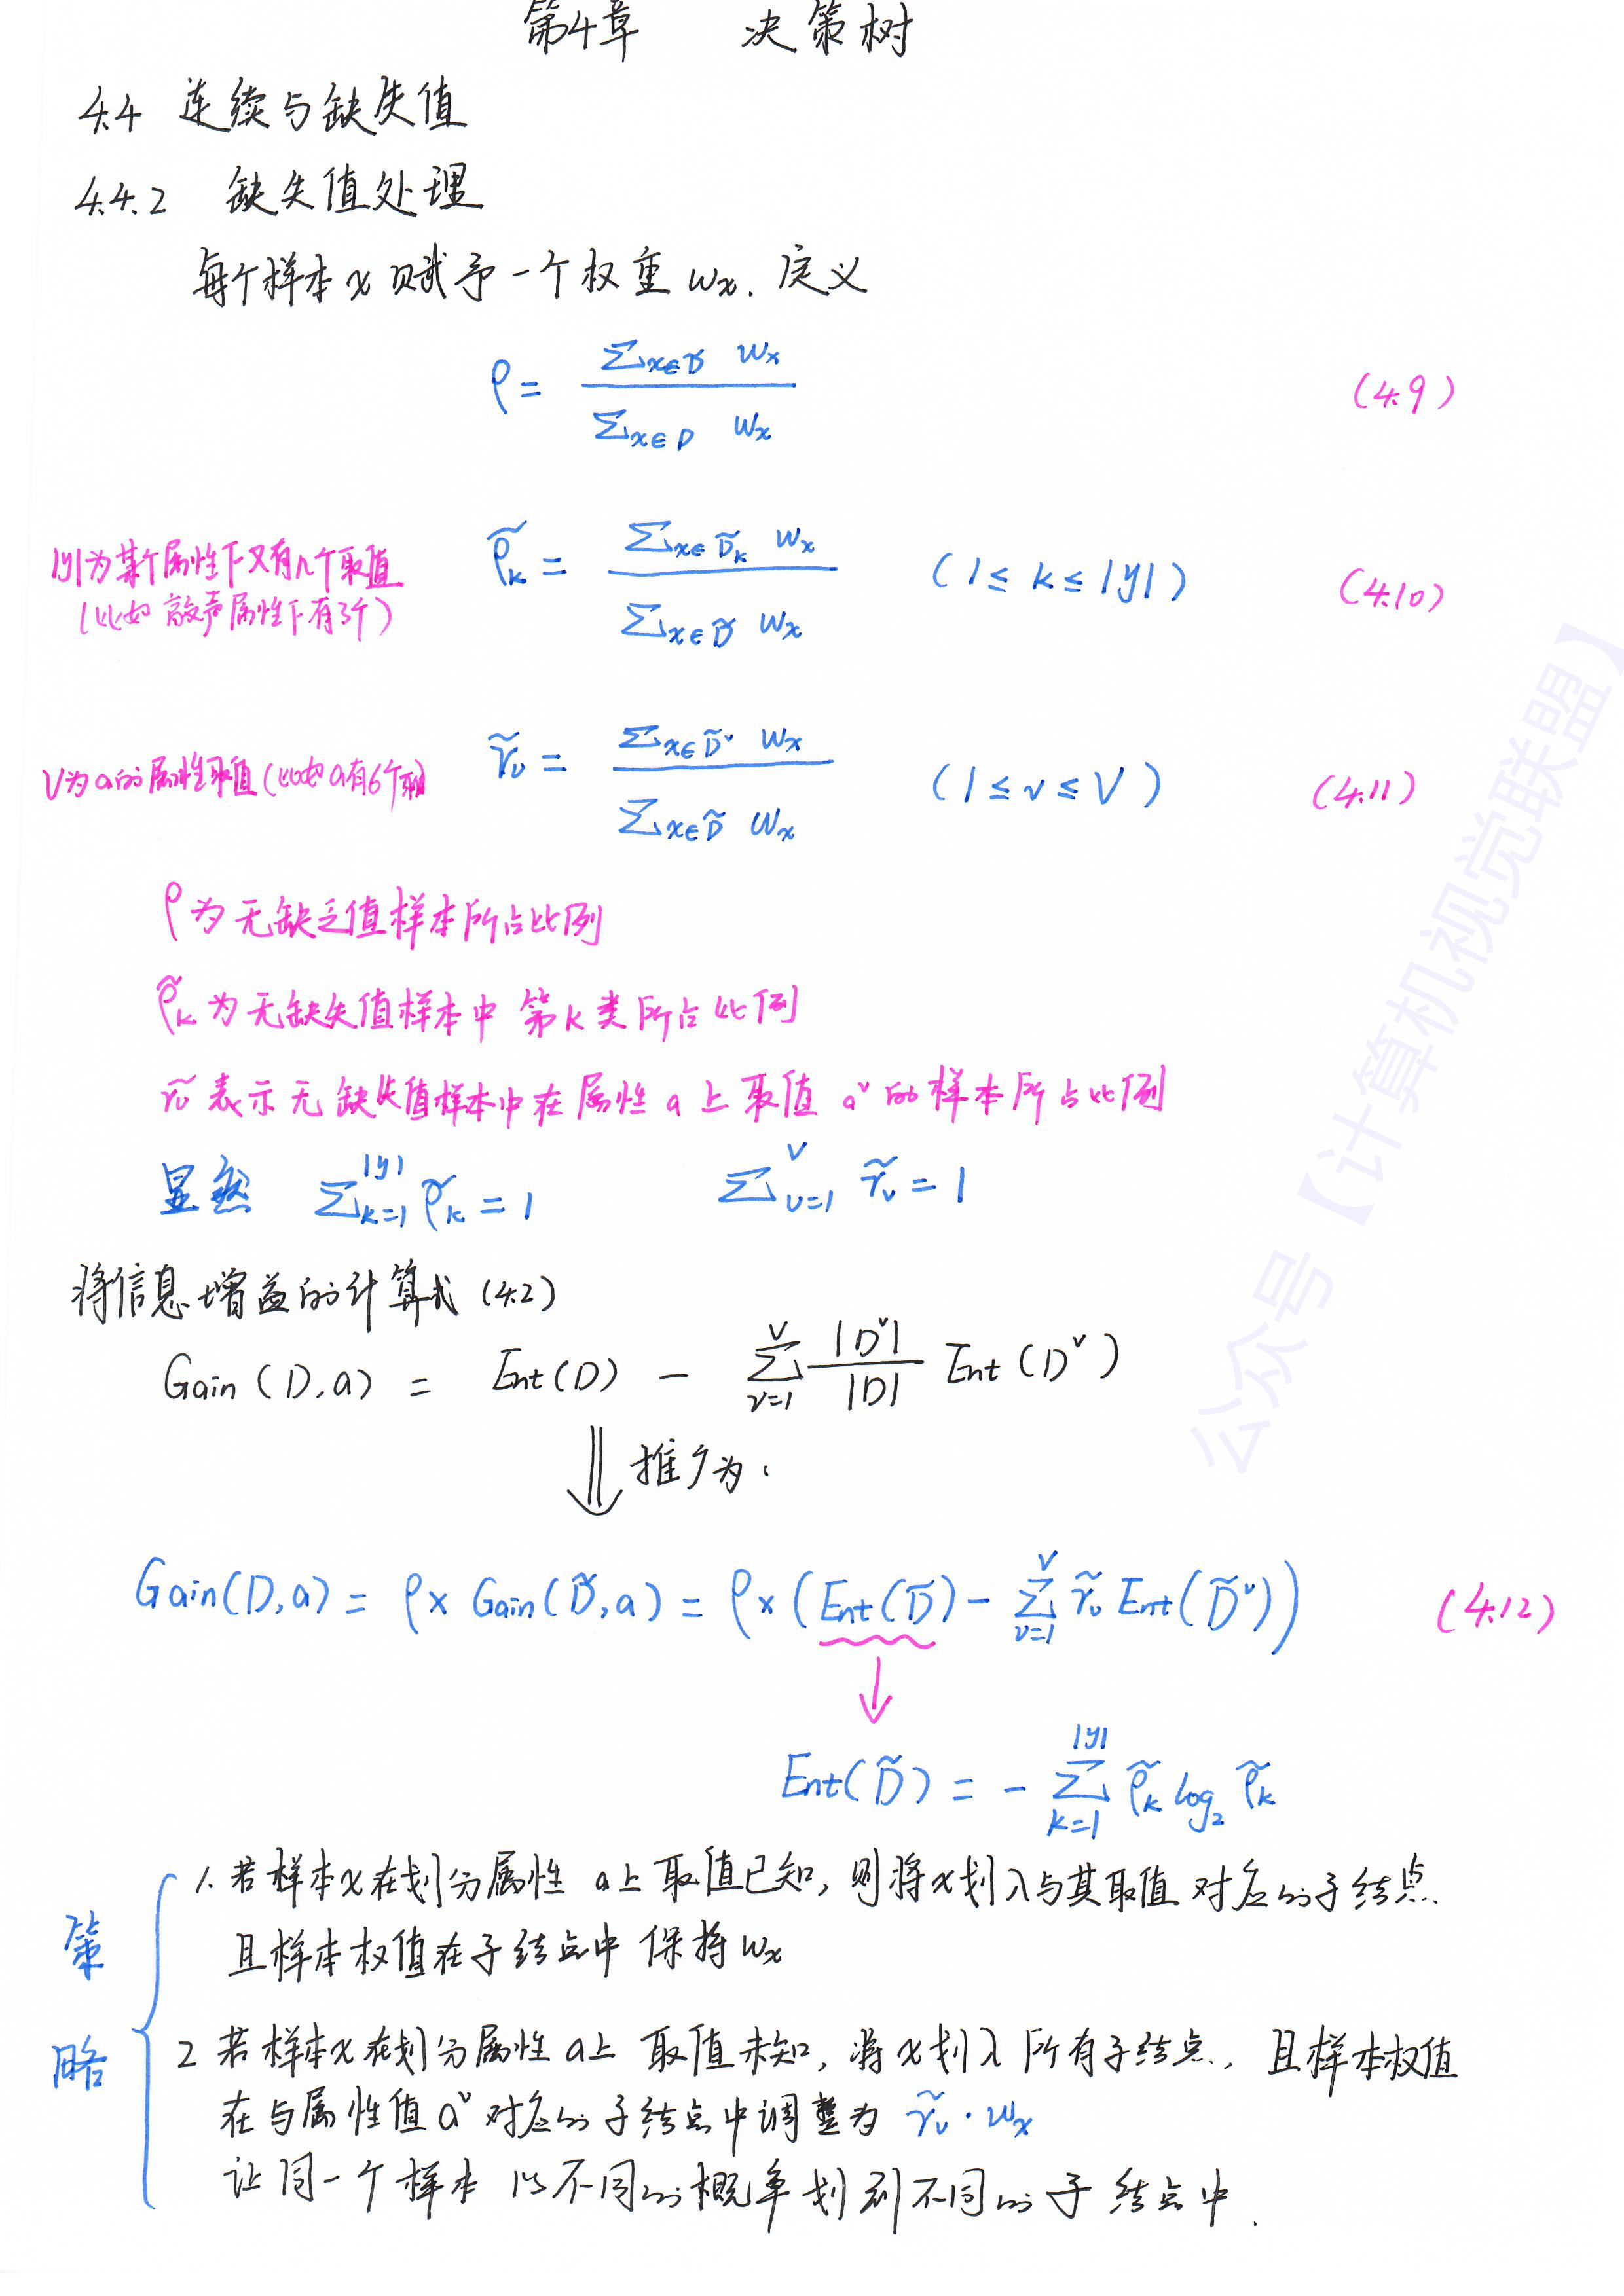 第4章 决策树
4.4 连续与缺失值
4.4.2 缺失值处理
每个样本x赋予一个权重 wx. 定义
ρ = ∑x∈D̃ wx / ∑x∈D wx (4.9)
|y|为某个属性下又有几个取值
(比如敲声属性下有3个)
ρ̃k = ∑x∈D̃k wx / ∑x∈D̃ wx (1≤ k ≤ |y|) (4.10)
V为a的属性取值(比如a有6个取值)
r̃v = ∑x∈D̃ᵛ wx / ∑x∈D̃ wx (1≤ v ≤ V) (4.11)
ρ为无缺乏值样本所占比例
ρ̃k为无缺失值样本中 第k类所占比例
r̃v 表示无缺失值样本中在属性 a 上取值 aᵛ的样本所占比例
显然 ∑k=1|y| ρ̃k = 1 ∑v=1V r̃v = 1
将信息增益的计算式 (4.2)
Gain (D,a) = Ent(D) - ∑v=1V |Dᵛ| / |D| Ent (Dᵛ)
⇓ 推广为:
Gain(D,a) = ρ× Gain(D̃,a) = ρ×(Ent(D̃) - ∑v=1V r̃v Ent(D̃ᵛ)) (4.12)
↓
Ent(D̃) = - ∑k=1|y| ρ̃k log₂ ρ̃k
策略
1. 若样本x在划分属性 a上取值已知, 则将x划入与其取值对应的子结点
且样本权值在子结点中保持wx
2 若样本x在划分属性a上 取值未知, 将x划入所有子结点, 且样本权值
在与属性值aᵛ对应的子结点中调整为 r̃v · wx
让同一个样本 以不同的概率划到不同的子结点中.
公众号【计算机视觉联盟】